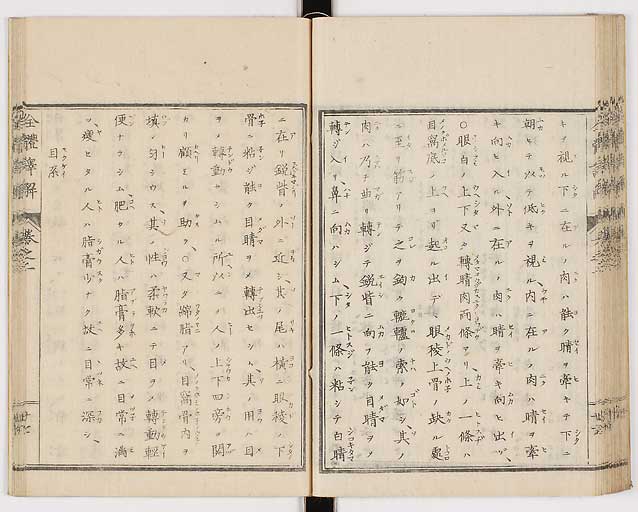 キヲ視ル下ニ在ルノ肉ハ能ク睛ヲ牽キテ下ニ
朝ヒテ以テ低キヲ視ル内ニ在ルノ肉ハ睛ヲ牽
キ向ヒ入ル外ニ在ルノ肉ハ睛ヲ牽キ向ヒ出ツ、
〇眼白ノ上下又タ轉睛肉両條アリ上ノ一條ハ
目窩底ノ上ヨリ起ル出デ眼稜上骨ノ缺ル處
ニ至リ筋アリテ之ヲ鉤ク轆轤ノ索ノ如シ其ノ
肉ハ乃チ曲リ轉ジテ鋭眥ニ向フ能ク目睛ヲメ
轉ジ入リ鼻ニ向ハシム下ノ一條ハ粘シテ白睛
ニ在リ鋭眥ノ外ニ近シ其ノ尾ハ横ニ眼稜ノ下
骨ニ粘ジ能ク目睛ヲメ轉出セシム其ノ用ハ目
ヲメ轉動セシム所以ニノ人ノ上下四旁ヲ関
カリ顧ミルヲ助ク、〇又タ綿脂アリ目窩骨内ヲ
填匀シウス其ノ性ハ柔軟ニテ目ヲメ轉動輕
便ナラシム肥タル人ハ脂膏多キ故ニ目常ニ満
ツ瘦セタル人ハ脂膏少ナク故ニ目常ニ深シ、
目系
全體譯解
巻之二